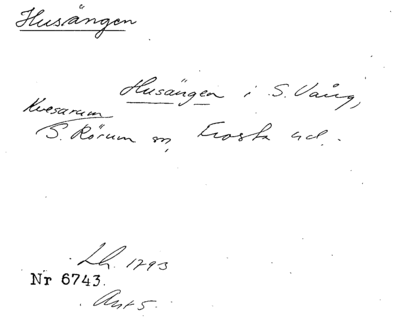 Husängen
Husängen i S. Vång,
Kvesarum
S. Rörum sn, Frosta hd.
Lh. 1793
Nr 6743.
Akt 5.